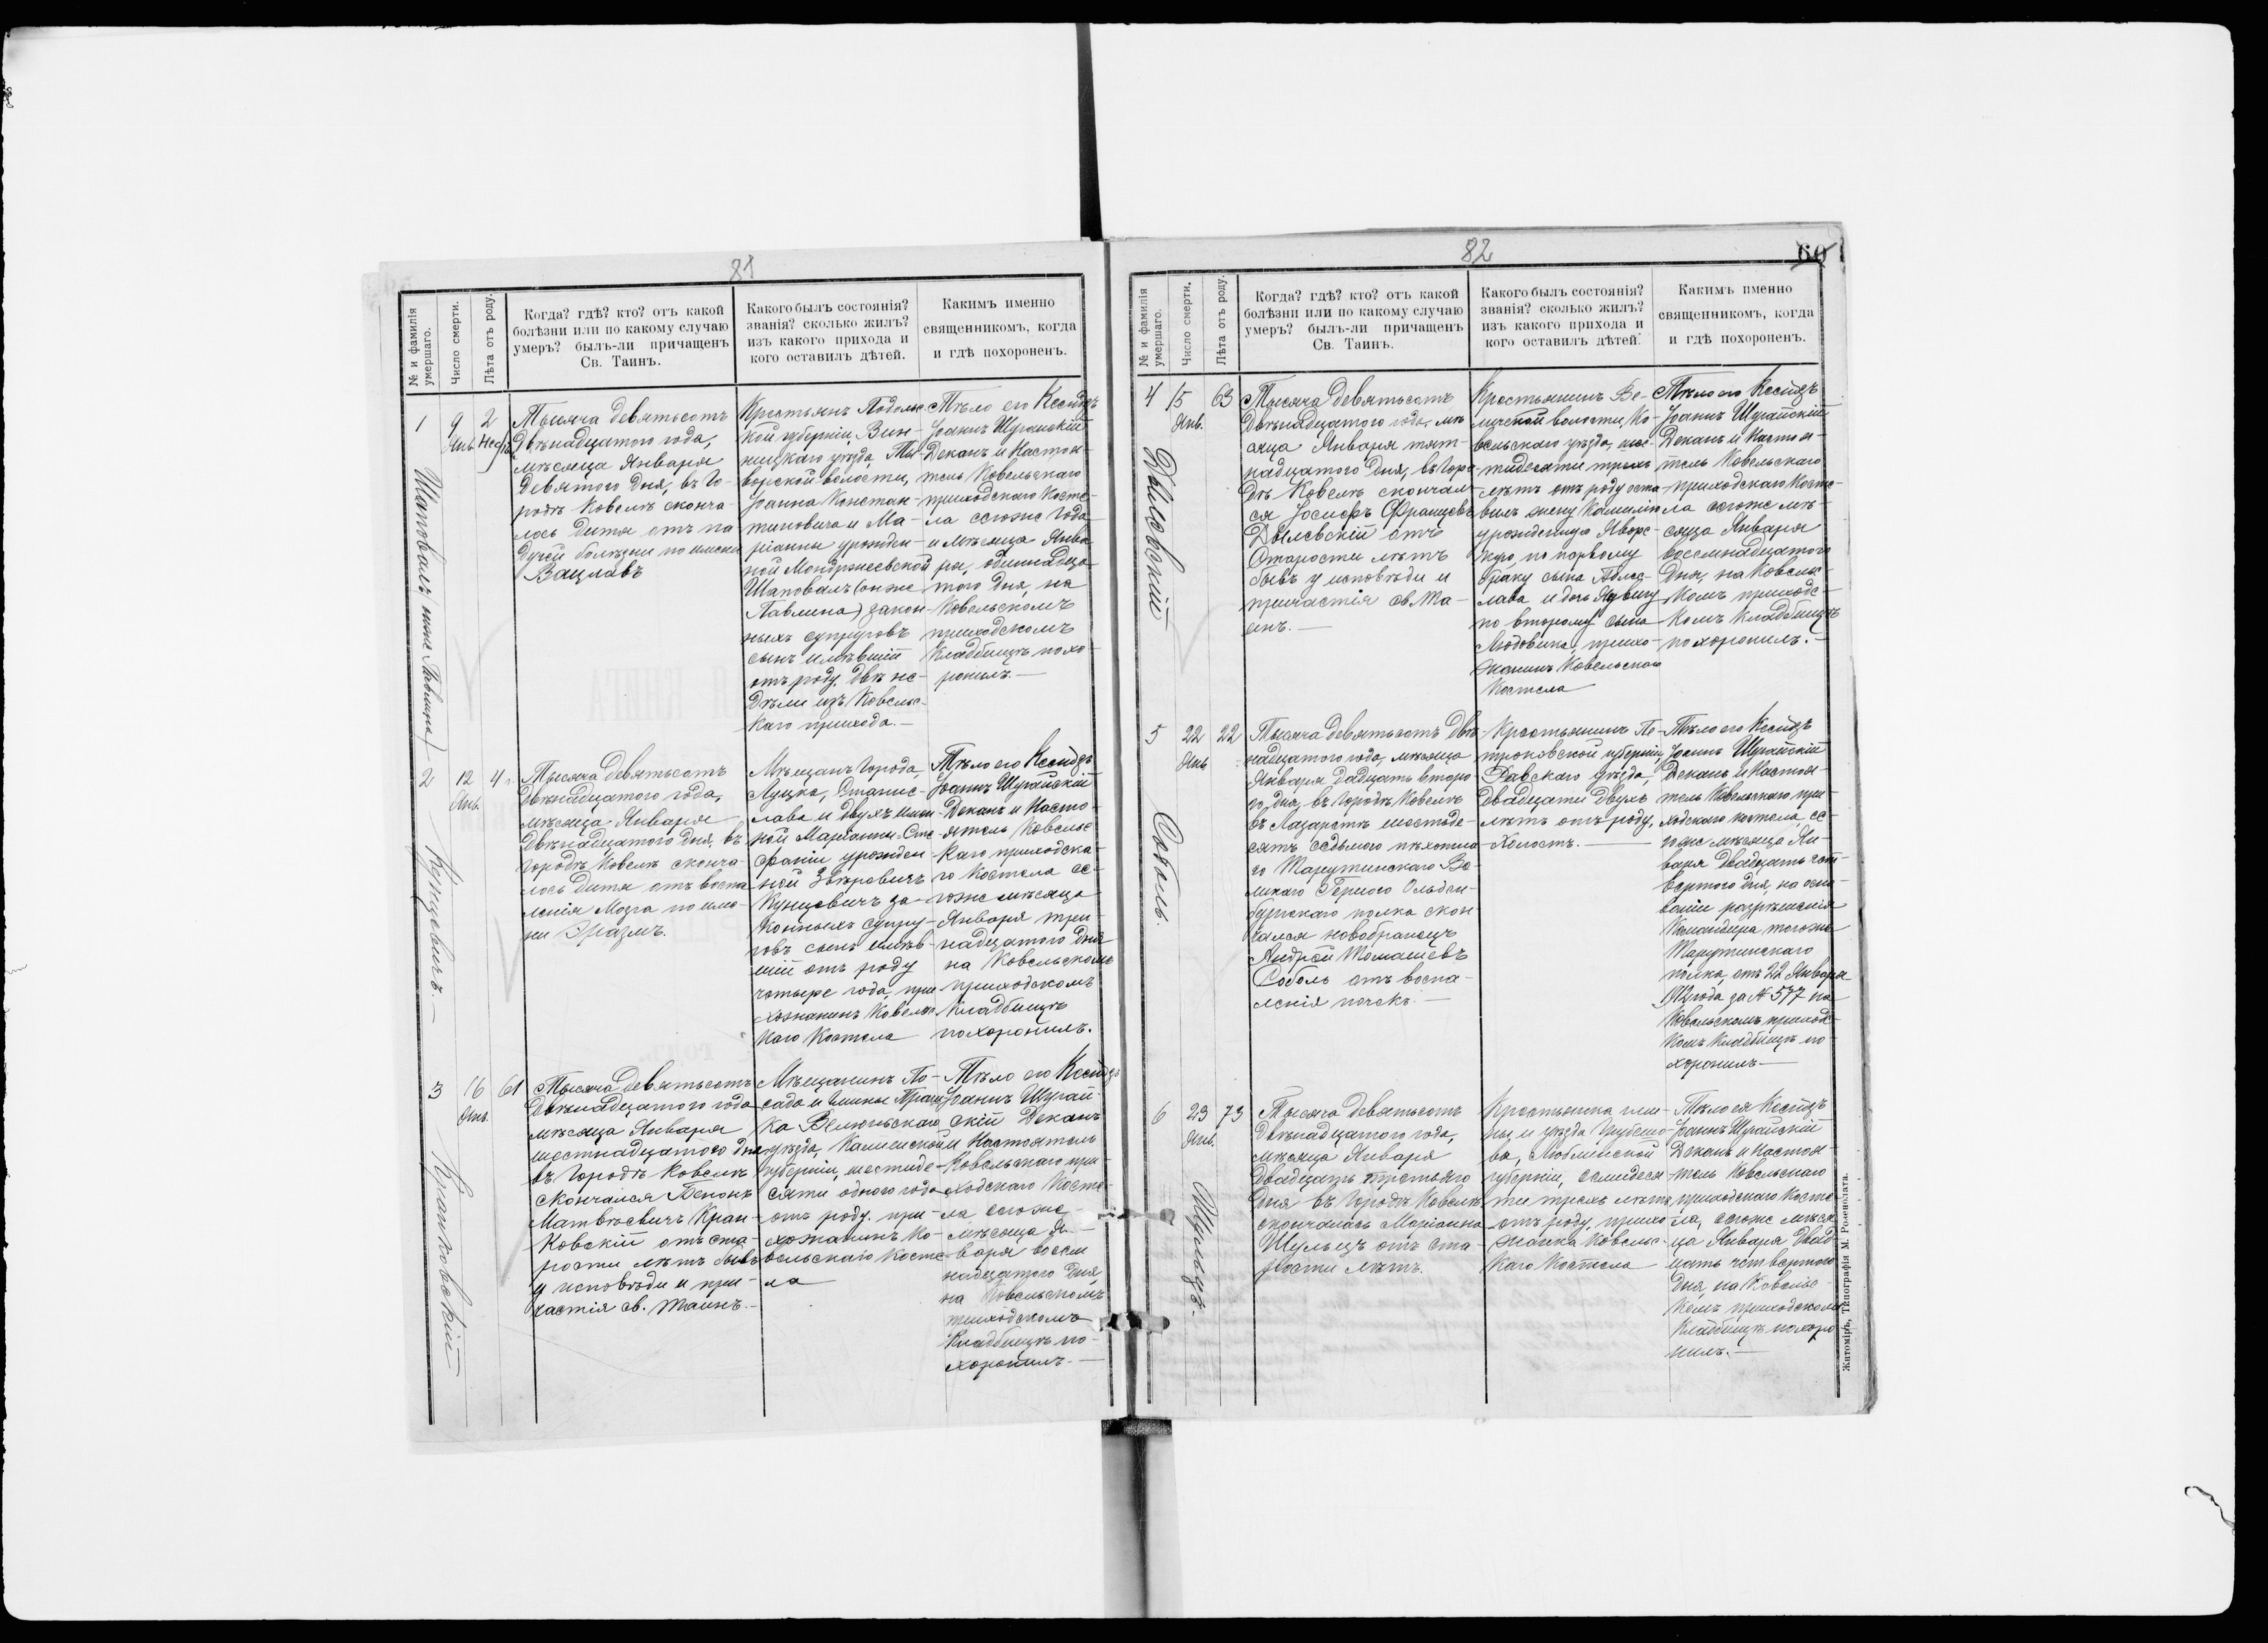 81
№ и фамилія умершаго.
Число смерти.
Лѣта отъ роду.
Когда? гдѣ? кто? отъ какой
болѣзни или по какому случаю
умеръ? былъ-ли причащенъ
Св. Таинъ.
Какого былъ состоянія?
званія? сколько жилъ?
изъ какого прихода и
кого оставилъ дѣтей.
Какимъ именно
священникомъ, когда
и гдѣ похороненъ.
1
9
Янв.
2
Нед
Шаповалъ
Тысяча девятьсотъ
двѣнадцатого года,
мѣсяца Января
девятого дня, въ го-
родѣ Ковелѣ сконча-
лось дитя отъ па
дучей болѣзни по имени
Вацлавъ
Крестьянъ Подольс-
кой губерніи, Вин-
ницкаго уѣзда, Ты-
вровской волости,
Іоанна Констан-
тиновича и Ма-
ріанны урожден-
ной Мондржеевской
Шаповалъ (онже
Павлина) закон-
ныхъ супруговъ
сынъ имѣвшій
отъ роду двѣ не-
дѣли изъ Ковельс-
каго прихода.—
Тѣло его Ксендзъ
Іоаннъ Шурайскій
Деканъ и Настоя-
тель Ковельскаго
приходскаго Косте-
ла сегоже года
и мѣсяца Янва
ря, одиннадца-
того дня, на
Ковельскомъ
приходскомъ
Кладбищѣ похо-
ронилъ.—
2
12
Янв.
4
Кунцевичъ.—
Тысяча девятьсотъ
двѣнадцатого года,
мѣсяца Января
двѣнадцатого дня, въ
городѣ Ковелѣ сконча
лось дитя отъ воспа
ленія Мозга по име-
ни Эразмъ.
Мѣщанъ города
Луцка, Станис-
лава и двухъ имен-
ной Маріанны-Сте
фаніи урожден-
ной Звѣровичъ
Кунцевичъ за-
конныхъ супру-
говъ сынъ имѣв-
шій отъ роду
четыре года, при
хожанинъ Ковельс
каго Костела
Тѣло его Ксендзъ
Іоаннъ Шурайскій
Деканъ и Насто-
ятель Ковельс
каго приходска-
го Костела се-
гоже мѣсяца
Января три-
надцатого дня
на Ковельскомъ
приходскомъ
Кладбищѣ
похоронилъ.
3
16
Янв.
61
Кранковскій
Тысяча девятьсотъ
двѣнадцатого года
мѣсяца Января
шестнадцатого дня
въ городѣ Ковелѣ
скончался Зенонъ
Матвѣевичъ Кран-
ковскій отъ ста-
рости лѣтъ бывъ
у исповѣди и при-
частія св. Таинъ.—
Мѣщанинъ По-
сада и гмины Праш
ка Велюньскаго
уѣзда, Калишской
губерніи, шестиде-
сяти одного года
отъ роду, при-
хожанинъ Ко-
вельскаго Косте-
ла
Тѣло его Ксендзъ
Іоаннъ Шурай-
скій Деканъ
и Настоятель
Ковельскаго при-
ходскаго Косте-
ла сегоже
мѣсяца Ян-
варя восем
надцатого дня,
на Ковельскомъ
приходскомъ
Кладбищѣ по-
хоронилъ.—
82
60
№ и фамилія умершаго.
Число смерти.
Лѣта отъ роду.
Когда? гдѣ? кто? отъ какой
болѣзни или по какому случаю
умеръ? былъ-ли причащенъ
Св. Таинъ.
Какого былъ состоянія?
званія? сколько жилъ?
изъ какого прихода и
кого оставилъ дѣтей.
Какимъ именно
священникомъ, когда
и гдѣ похороненъ.
4
15
Янв.
63
Дылевскій
Тысяча девятьсотъ
двѣнадцатого года, мѣ
сяца Января пят-
надцатого дня, въ горо-
дѣ Ковелѣ скончал-
ся Іосифъ Францевъ
Дылевскій отъ
Старости лѣтъ
бывъ у исповѣди и
причастія св. Та-
инъ.—
Крестьянинъ Ве-
лицкой волости, Ко-
вельскаго уѣзда, шес-
тидесяти трехъ
лѣтъ отъ роду оста-
вилъ жену Камилію
урожденную Яворс-
кую, по первому
браку сына Болес-
лава и дочь Ядвигу
по второму сына
Людовика, прихо-
жанинъ Ковельскаго
Костела
Тѣло его Ксендзъ
Іоаннъ Шурайскій
Деканъ и Настоя-
тель Ковельскаго
приходскаго Косте-
ла сегоже мѣ-
сяца Января
восемнадцатого
дня, на Ковельс-
комъ приходс-
комъ Кладбищѣ
похоронилъ.—
5
22
Янв
22
Соболь.
Тысяча девятьсотъ двѣ
надцатого года, мѣсяца
Января дадцать второ-
го дня, въ городѣ Ковелѣ
въ Лазаретѣ шестьде-
сятъ седьмого пѣхотна-
го Тарутинскаго Ве-
ликаго Герцога Ольден-
бургскаго полка скон
чался новобранецъ
Андрей Томашевъ
Соболь отъ воспа-
ленія почекъ.—
Крестьянинъ Пе-
троковской губерніи,
Равскаго уѣзда,
двадцати двухъ
лѣтъ отъ роду,
Холостъ.—
Тѣло его Ксендзъ
Іоаннъ Шурайскій
Деканъ и Настоя-
тель Ковельскаго при-
ходскаго костела се-
гоже мѣсяца Ян-
варя двадцать чет-
вертого дня, на осно-
ваніи разрѣшенія
Командира тогоже
Тарутинскаго
полка, отъ 22 Января
1912 года за № 577 на
Ковельскомъ приходс-
комъ Кладбищѣ по-
хоронилъ—
6
23
Янв.
73
Шульцъ.
Тысяча девятьсотъ
двѣнадцатого года,
мѣсяца Января
двадцать третьяго
дня въ городѣ Ковелѣ
скончалась Маріанна
Шульцъ отъ ста-
рости лѣтъ.
Крестьянка гми-
ны и уѣзда Грубешо-
ва, Люблинской
губерніи, семидеся
ти трехъ лѣтъ
отъ роду, прихо
жанка Ковельс-
каго Костела
Тѣло ея Ксендзъ
Іоаннъ Шурайскій
Деканъ и Настоя-
тель Ковельскаго
приходскаго Косте
ла, сегоже мѣся-
ца Января двад-
цать четвертого
дня, на Ковельс-
комъ приходскомъ
Кладбищѣ похоро
нилъ.—
Житоміръ, Типографія М. Розенблата.